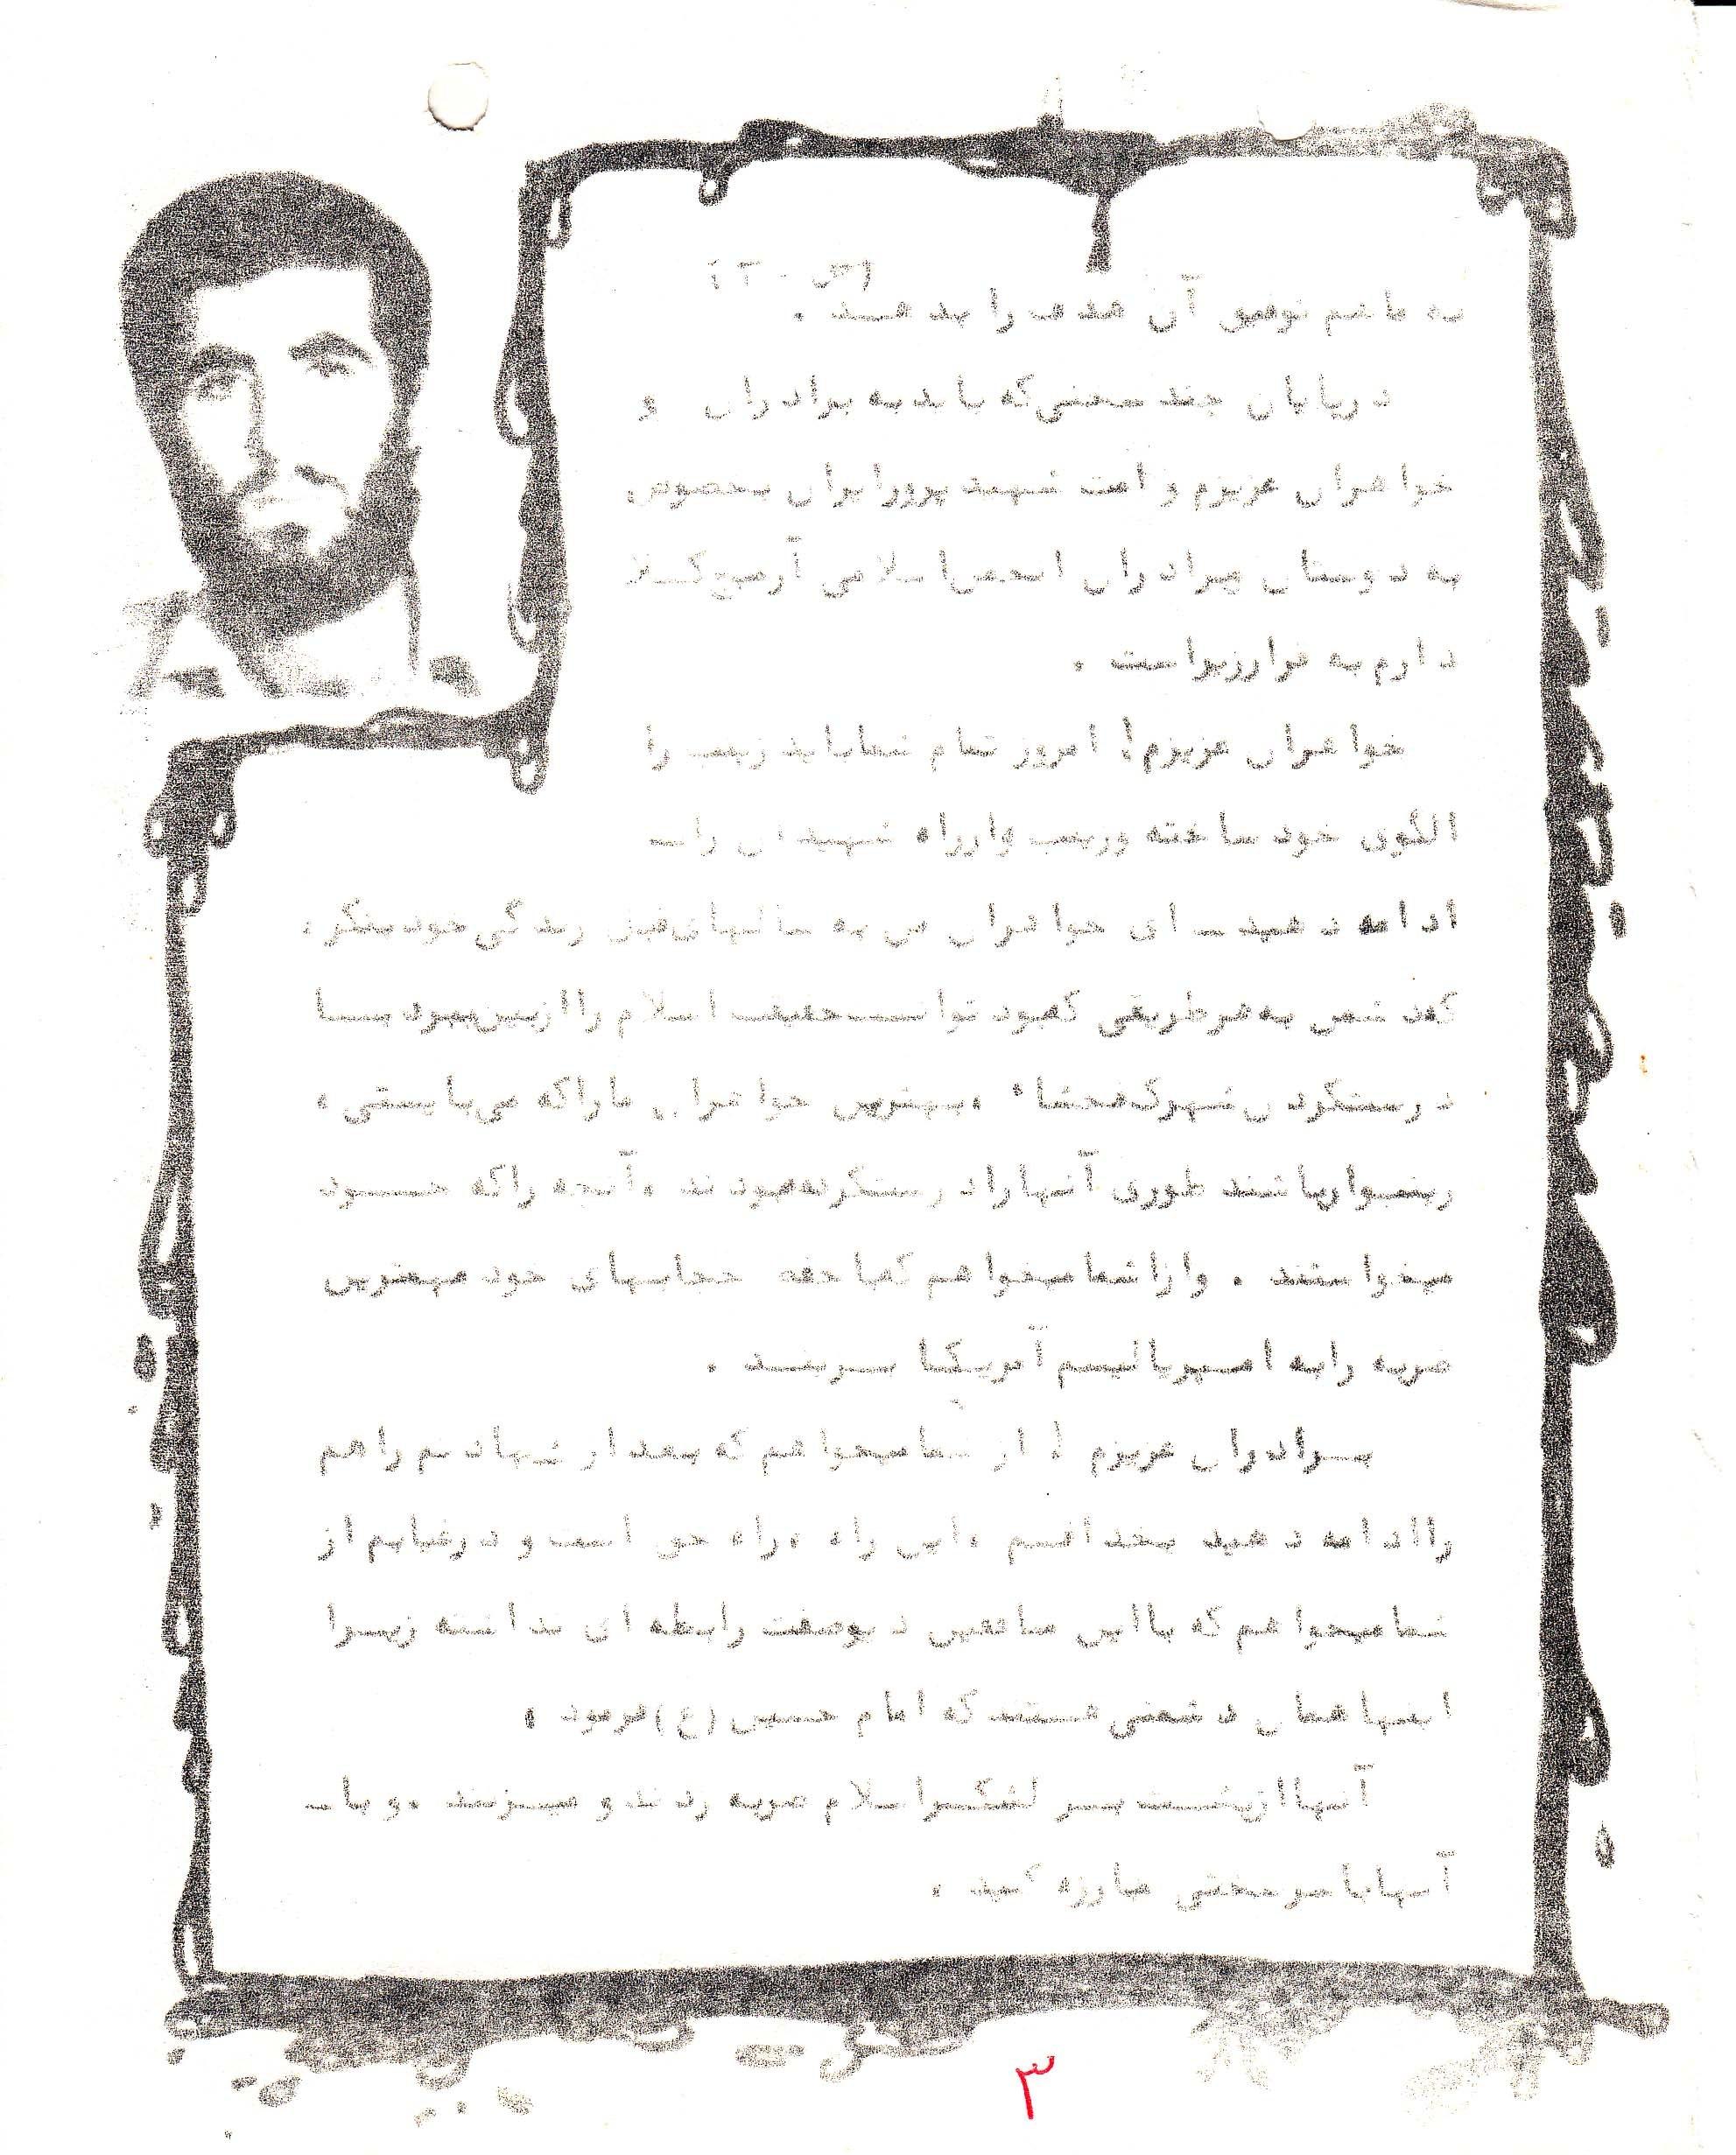 به ما هم توفیق آن هدف را بدهد .
در پایان چند سخنی که باید به برادران و
خواهران عزیزم و امت شهید پرور ایران بخصوص
به دوستان و برادران انجمن اسلامی
دارم به قرار زیر است .
خواهران عزیزم! امروز تمام شما باید زینب را
الگوی خود ساخته و زینب وار راه شهیدان را
ادامه دهید ـ ای خواهران من به سالهای قبل زندگی خود بنگر ،
که دشمن به هر طریقی که بود توانست حقیقت اسلام را از بین ببرد بـا
درست کردن شهرک فحشاء ، بهترین خواهران ما را که می بایستی ،
زینب وار باشند طوری آنها را درست کرده بودند ، آنچه را که خـود
میخواستند . و از شما میخواهم که با حفظ حجابهای خود مهمترین
ضربه را به امپریالیسم آمریکا بـزنـید .
بـرادران عزیزم ! از شما میخواهم که بعد از شهادتم راهم
را ادامه دهید بخدا قسم ، این راه ، راه حق است و در غیابم از
شما میخواهم که با این منافقین دیو صفت رابطه ای نداشته زیـرا
اینها همان دشمنی هستند که امام حسین (ع) فرمود ،
آنها از پشـت بـر لشگـر اسلام ضربه زدند و میـزنند ، و با ـ
آنها با سرسختی مبارزه کنید .
۳